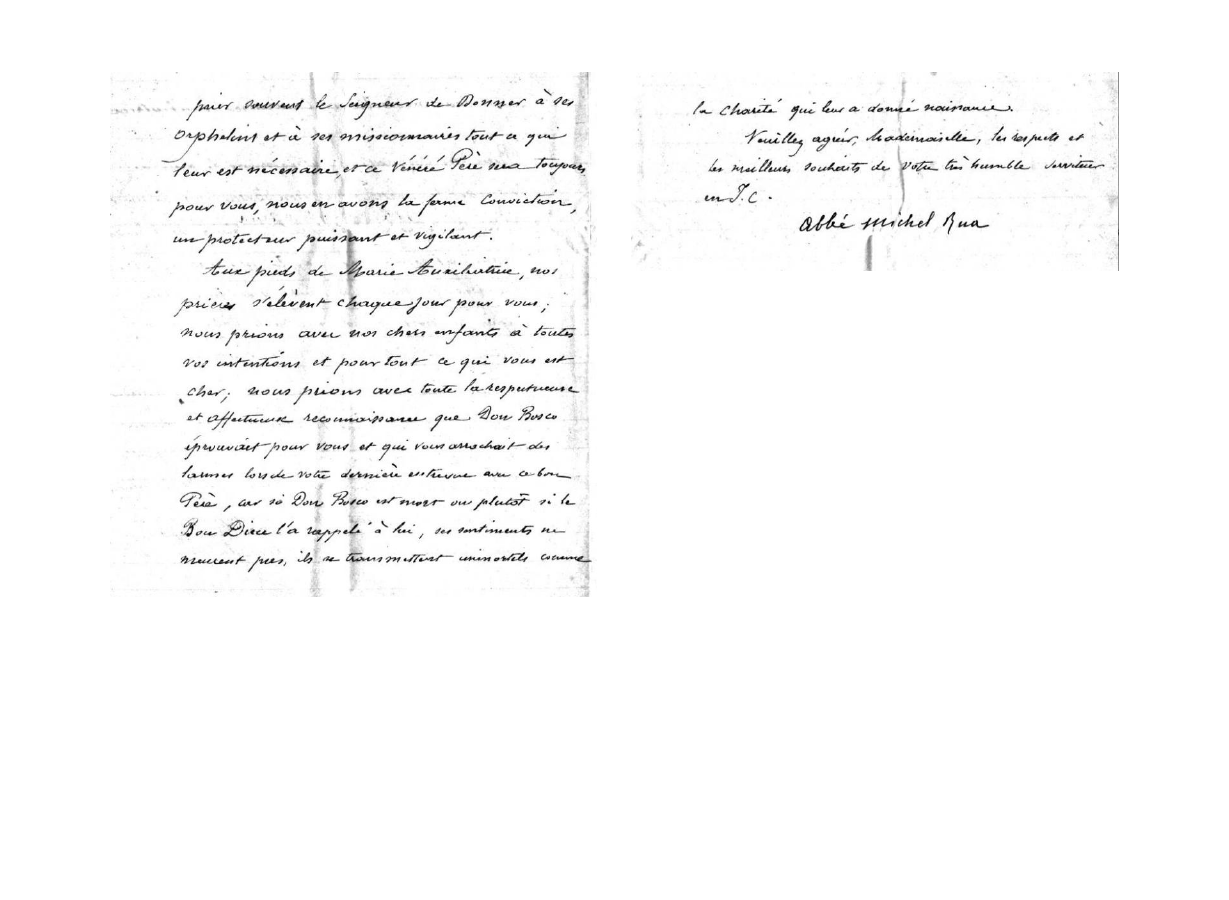 prier souvent le Seigneur de Donner à ses
orphelins et à ses missionnaires tout ce qui
leur est nécessaire, et ce Vénéré Père sera toujours
pour vous, nous en avons la ferme Conviction,
un protecteur puissant et vigilant.
Aux pieds de Marie Auxiliatrice, nos
prières s'élèvent chaque jour pour vous ;
nous prions avec nos chers enfants à toutes
vos intentions et pour tout ce qui vous est
cher ; nous prions avec toute la respectueuse
et affectueuse reconnaissance que Don Bosco
éprouvait pour vous et qui vous arrachait des
larmes lors de votre dernière entrevue avec ce bon
Père, car si Don Bosco est mort ou plutôt si le
Bon Dieu l'a rappelé à lui, ses sentiments ne
meurent pas, ils se transmettent immortels comme
la Charité qui leur a donné naissance.
Veuillez agréer, Mademoiselle, les respects et
les meilleurs souhaits de Votre très humble serviteur
en J. C.
Abbé Michel Rua